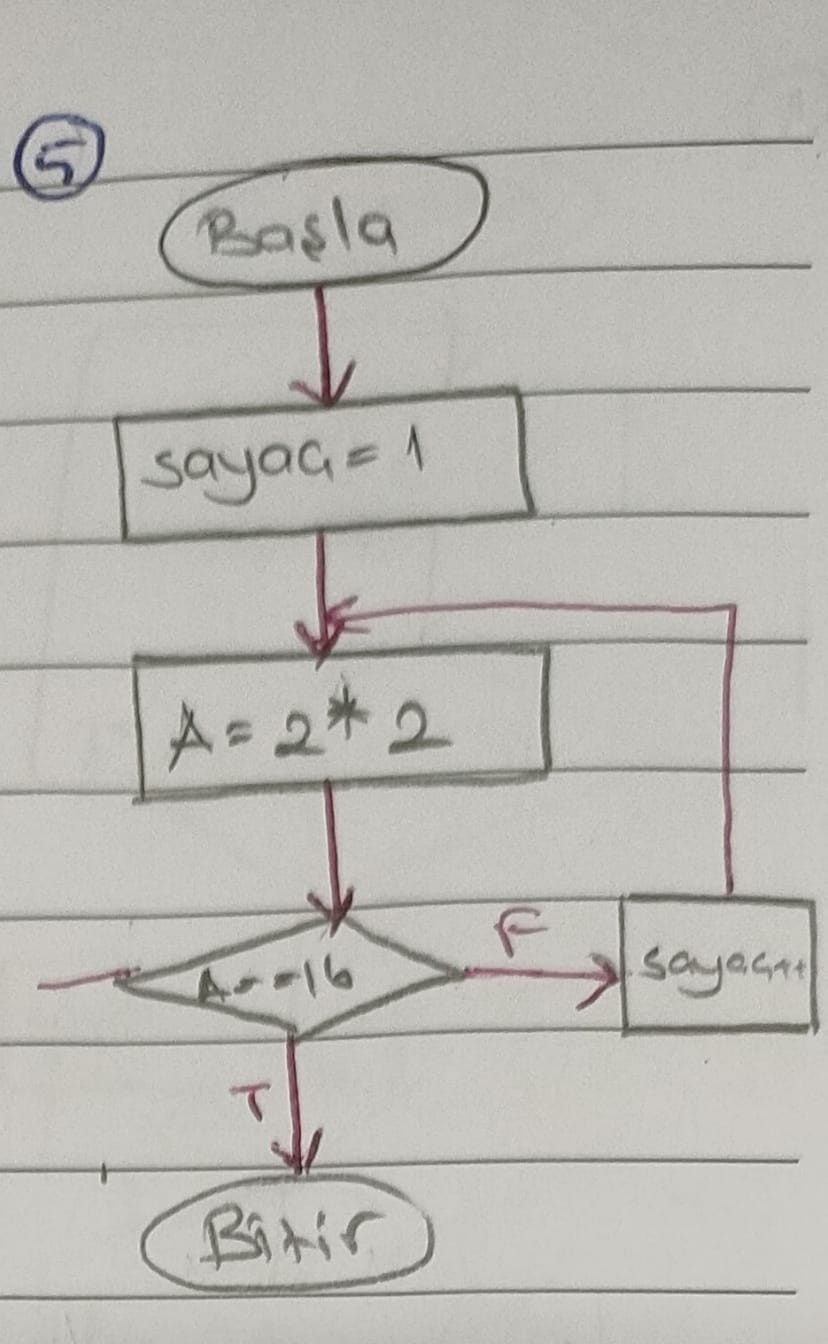 5
Başla
sayaç = 1
A = 2 * 2
A == 16
F
sayaç++
T
Bitir